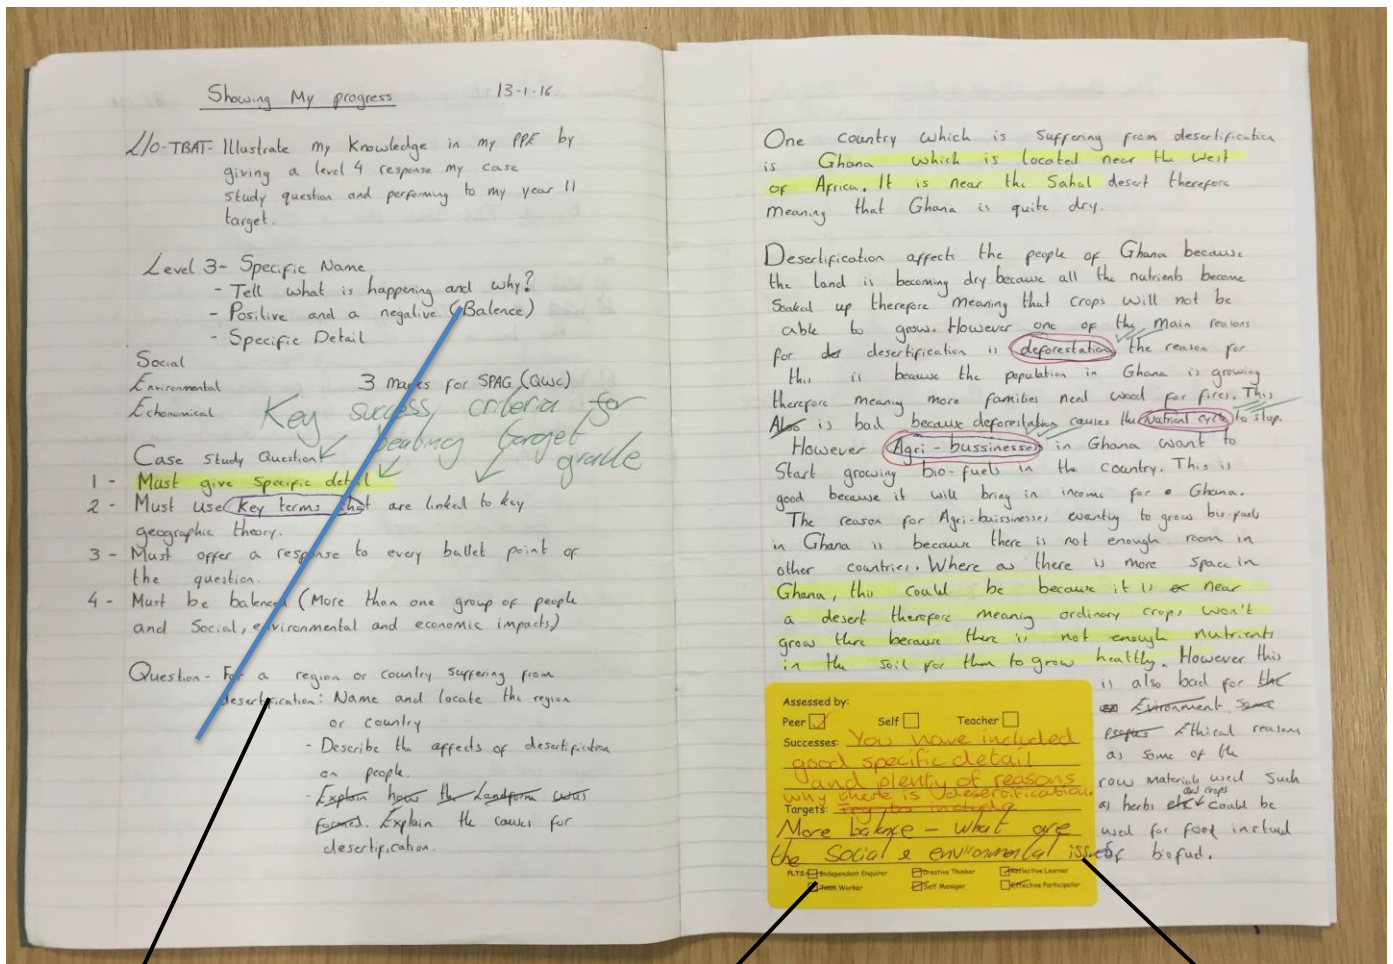 Showing My progress 13-1-16
L/O-TBAT- Illustrate my knowledge in my PPE by
giving a level 4 response my case
study question and performing to my year 11
target.
Level 3- Specific Name
- Tell what is happening and why?
- Positive and a negative (Balence)
- Specific Detail
Social
Environmental 3 marks for SPAG (QWC)
Echonomical
Key success criteria for
beating target
grade
Case Study Question
1 - Must give specific detail
2 - Must use key terms that are linked to key
geographic theory.
3 - Must offer a response to every bullet point of
the question.
4 - Must be balenced (More than one group of people
and Social, environmental and economic impacts)
Question - For a region or country suffering from
desertification: Name and locate the region
or country
- Describe the affects of desertification
on people.
- Explain how the Landform was
formed. Explain the causes for
desertification.
One country which is suffering from desertification
is Ghana which is located near the west
of Africa. It is near the Sahal desert therefore
meaning that Ghana is quite dry.
Desertification affects the people of Ghana because
the land is becoming dry because all the nutrients become
soaked up therefore meaning that crops will not be
able to grow. However one of the main reasons
for des desertification is deforestation, the reason for
this is because the population in Ghana is growing
therefore meaning more families need wood for fires. This
Also is bad because deforestation causes the nutrient cycle to stop.
However Agri-bussinesses in Ghana want to
Start growing bio-fuels in the country. This is
good because it will bring in income for Ghana.
The reason for Agri-buissinesses wanting to grow bio-fuels
in Ghana is because there is not enough room in
other countries. Where as there is more space in
Ghana, this could be because it is near
a desert therefore meaning ordinary crops won't
grow there because there is not enough nutrients
in the soil for them to grow healtly. However this
is also bad for the
Evironment some
peoples Ethical reasons
as some of the
raw materials used such
as herbs etc and crops could be
used for food instead
of biofuel.
Assessed by:
Peer Self Teacher
Successes: You have included
good specific detail
and plenty of reasons
why there is desertification
Targets: Try to include
More balance - what are
the social & environmental issues
PLTS: Independent Enquirer Creative Thinker Reflective Learner
Team Worker Self Manager Effective Participator